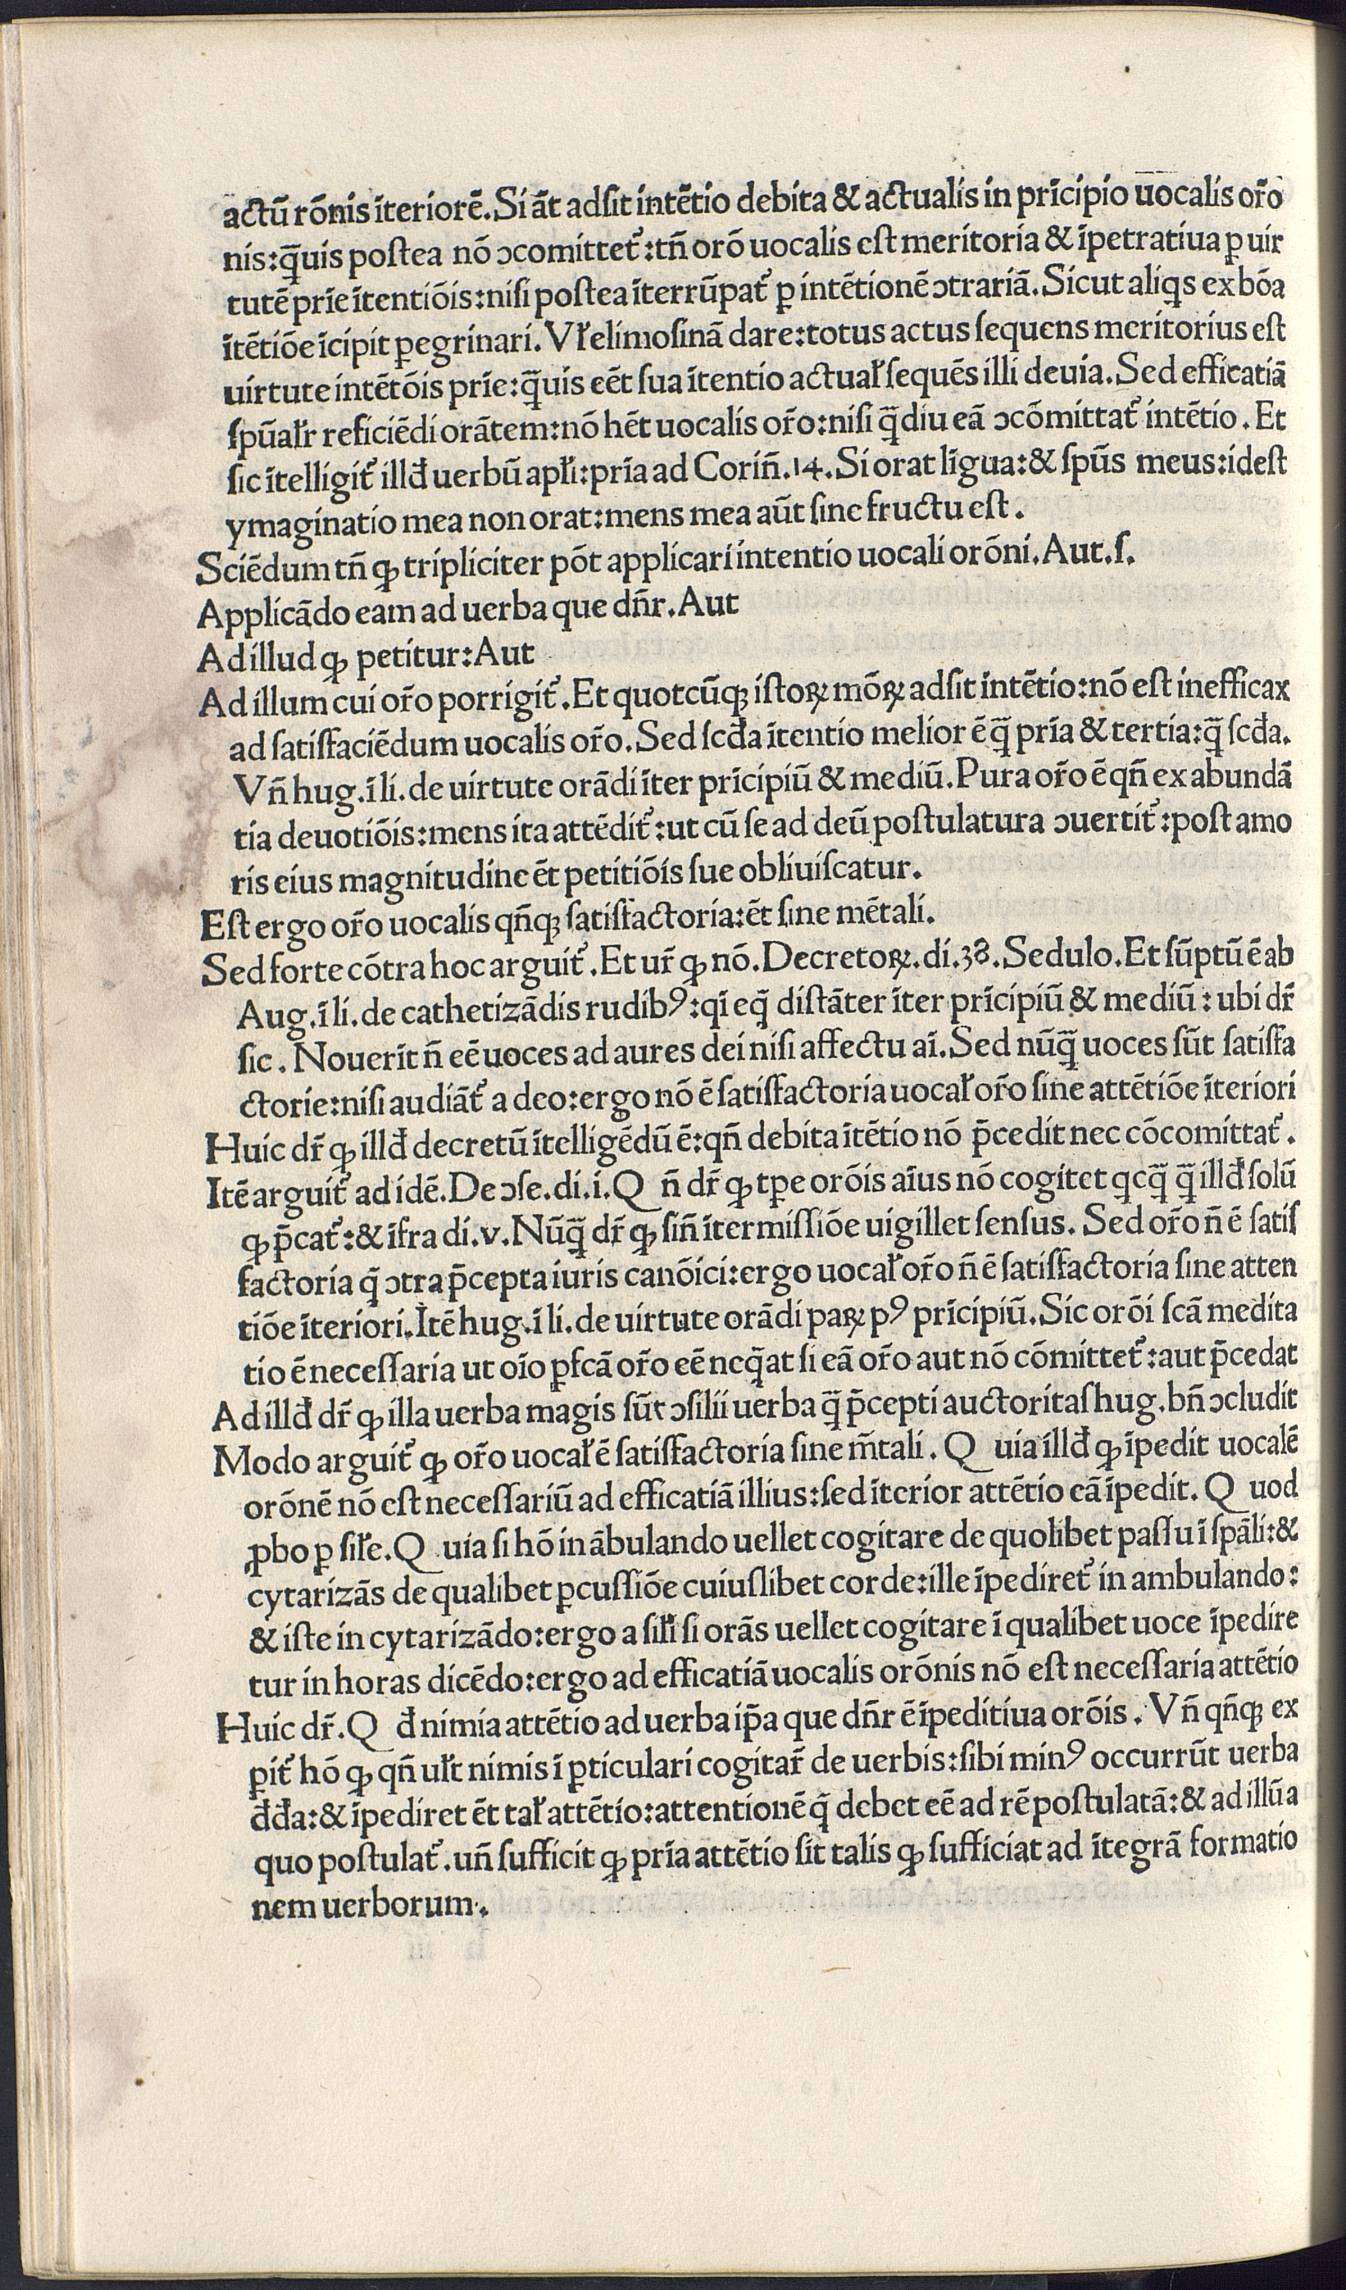 actū rōnis īteriorē. Si āt adſit intētio debita & actualis in prīcipio uocalis or̄o
nis: q̄uis poſtea nō ɔcomittet᷒: tn̄ orō uocalis eſt meritoria & īpetratiua ꝑ uir
tutē prīe ītentiōis: niſi poſtea īterrūpat᷒ ꝑ intētionē ɔtrariā. Sicut aliqs ex bōa
ītētiōe īcipit ꝑegrinari. Vł elimoſinā dare: totus actus ſequens meritorius eſt
uirtute intētōis prīe: q̄uis eēt ſua ītentio actuał ſequēs illi deuia. Sed efficatiā
ſpūałr reficiēdi orātem: nō hēt uocalis or̄o: niſi q̄diu eā ɔcōmittat᷒ intētio. Et
ſic ītelligit᷒ illđ uerbū apłi: prīa ad Corin̄. 14. Si orat līgua: & ſpūs meus: ideſt
ymaginatio mea non orat: mens mea aūt ſine fructu eſt.
Sciēdum tn̄ ꝙ tripliciter pōt applicari intentio uocali orōni. Aut. ſ.
Applicādo eam ad uerba que dn̄r. Aut
Ad illud ꝙ petitur: Aut
Ad illum cui or̄o porrigit᷒. Et quotcūꝙ iſtoꝝ mōꝝ adſit intētio: nō eſt inefficax
ad ſatiſfaciēdum uocalis or̄o. Sed ſcđa ītentio melior ē q̄ prīa & tertia: q̄ ſcđa.
Vn̄ hug. ī li. de uirtute orādi īter prīcipiū & mediū. Pura or̄o ē qn̄ ex abundā
tia deuotiōis: mens ita attēdit᷒: ut cū ſe ad deū poſtulatura ɔuertit᷒: poſt amo
ris eius magnitudine ēt petitiōis ſue obliuiſcatur.
Eſt ergo or̄o uocalis qn̄ꝙ ſatiſfactoria: ēt ſine mētali.
Sed forte cōtra hoc arguit᷒. Et ur̄ ꝙ nō. Decretoꝝ. di. 38. Sedulo. Et ſūptū ē ab
Aug. ī li. de cathetizādis rudibꝰ: qī eq̄ diſtāter īter prīcipiū & mediū: ubi dr̄
ſic. Nouerīt n̄ eē uoces ad aures dei niſi affectu aī. Sed nūq̄ uoces ſūt ſatiſfa
ctorie: niſi audiāt᷒ a deo: ergo nō ē ſatiſfactoria uocał or̄o ſine attētiōe īteriori
Huic dr̄ ꝙ illđ decretū ītelligēdū ē: qn̄ debita ītētio nō p̄cedit nec cōcomittat᷒.
Itē arguit᷒ ad idē. De ɔſe. di. i. Q n̄ dr̄ ꝙ tꝑe orōis aīus nō cogitet qcq̄ q̄ illđ ſolū
ꝙ p̄cat᷒: & īfra di. v. Nūq̄ dr̄ ꝙ ſin̄ ītermiſſiōe uigillet ſenſus. Sed or̄o n̄ ē ſatiſ
factoria q̄ ɔtra p̄cepta iuris canōici: ergo uocał or̄o n̄ ē ſatiſfactoria ſine atten
tiōe īteriori. Itē hug. ī li. de uirtute orādi paꝝ pꝰ prīcipiū. Sic orōi ſcā medita
tio ē neceſſaria ut oīo ꝑfcā or̄o eē neq̄at ſi eā or̄o aut nō cōmittet᷒: aut p̄cedat
Ad illđ dr̄ ꝙ illa uerba magis ſūt ɔſilii uerba q̄ p̄cepti auctoritaſ hug. bn̄ ɔcludit
Modo arguit᷒ ꝙ or̄o uocał ē ſatiſfactoria ſine m̄tali. Q uia illđ ꝙ īpedit uocalē
orōnē nō eſt neceſſariū ad efficatiā illius: ſed īterior attētio eā īpedit. Q uod
ꝓbo ꝑ ſiłe. Q uia ſi hō in ābulando uellet cogitare de quolibet paſſu ī ſpāli: &
cytarizās de qualibet ꝑcuſſiōe cuiuſlibet corde: ille īpediret᷒ in ambulando:
& iſte in cytarizādo: ergo a ſiłi ſi orās uellet cogitare ī qualibet uoce īpedire
tur in horas dicēdo: ergo ad efficatiā uocalis orōnis nō eſt neceſſaria attētio
Huic dr̄. Q đ nimia attētio ad uerba ip̄a que dn̄r ē īpeditiua orōis. Vn̄ qn̄ꝙ ex
ꝑit᷒ hō ꝙ qn̄ ułt nimis ī ꝑticulari cogitar̄ de uerbis: ſibi minꝰ occurrūt uerba
đđa: & īpediret ēt tał attētio: attentionē q̄ debet eē ad rē poſtulatā: & ad illū a
quo poſtulat᷒. un̄ ſufficit ꝙ prīa attētio ſit talis ꝙ ſufficiat ad ītegrā formatio
nem uerborum.